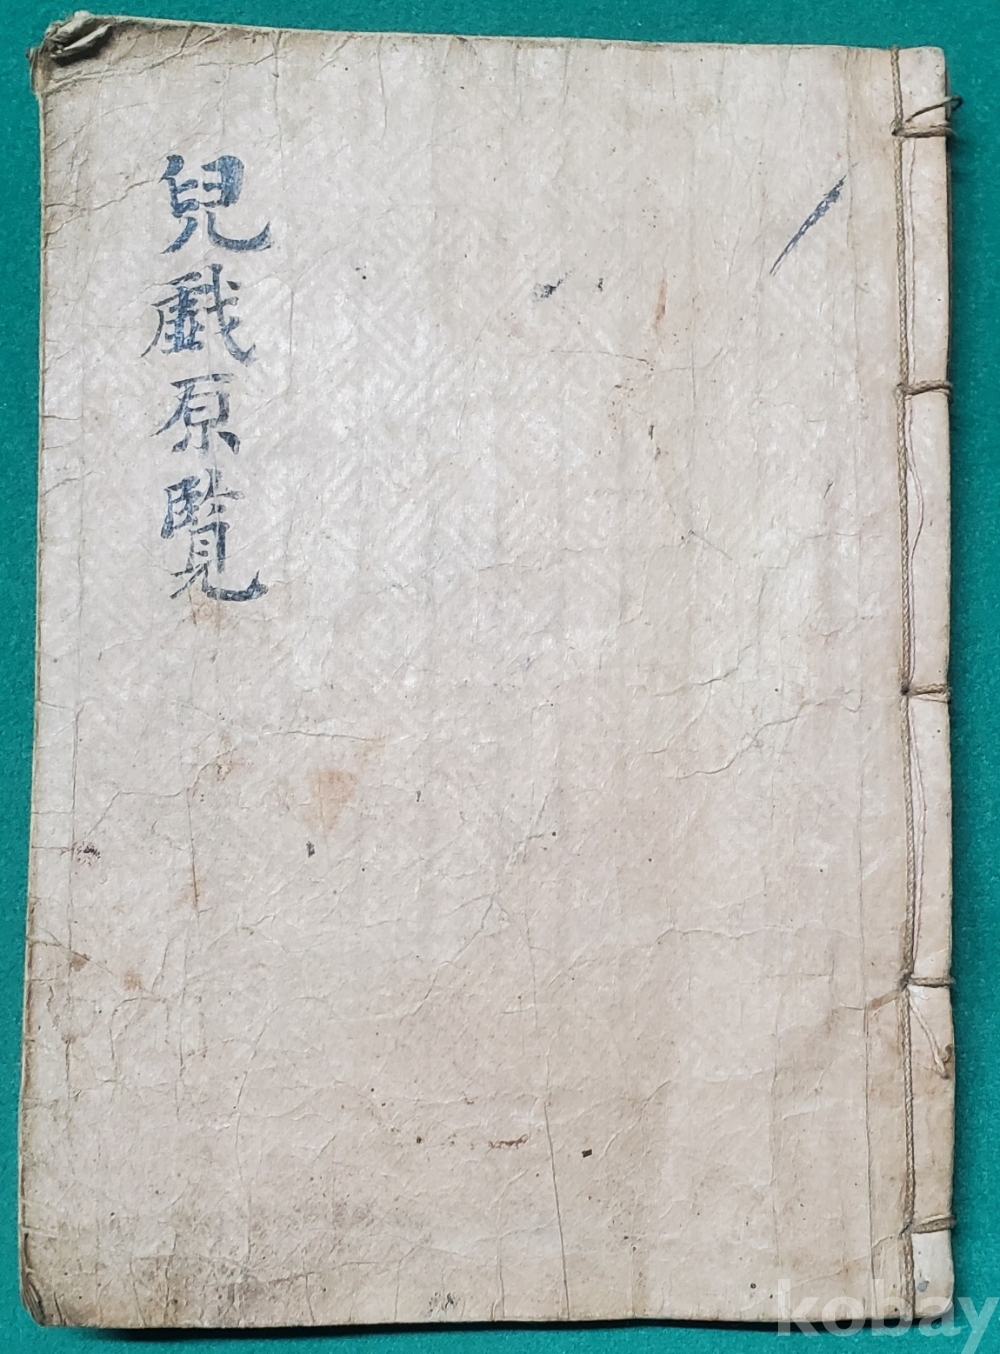 兒戱原覽
kobay